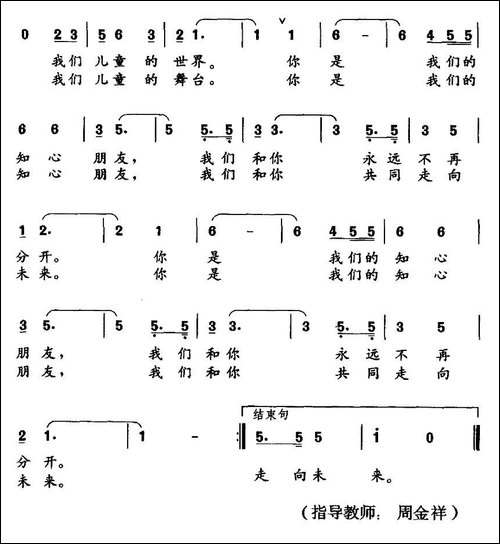 0 2 3 | 5 6 3 | 2 1. | 1 1 | 6 - | 6 4 5 5 |
我们 儿童 的 世界。 你 是 我们的
我们 儿童 的 舞台。 你 是 我们的
6 6 | 3 5. | 5 5. 5 | 3 3. | 3 5. 5 |
知 心 朋友， 我们 和你 永远不再
知 心 朋友， 我们 和你 共同走向
1 2. | 2 1 | 6 - | 6 4 5 5 | 6 6 |
分开。 你 是 我们的 知 心
未来。 你 是 我们的 知 心
3 5. | 5 5. 5 | 3 3. | 3 5. 5 | 3 5 |
朋友， 我们 和你 永远不再
朋友， 我们 和你 共同走向
结束句
2 1. | 1 - :‖ 5. 5 5 | i 0 ‖
分开。
未来。 走向未 来。
（指导教师：周金祥）